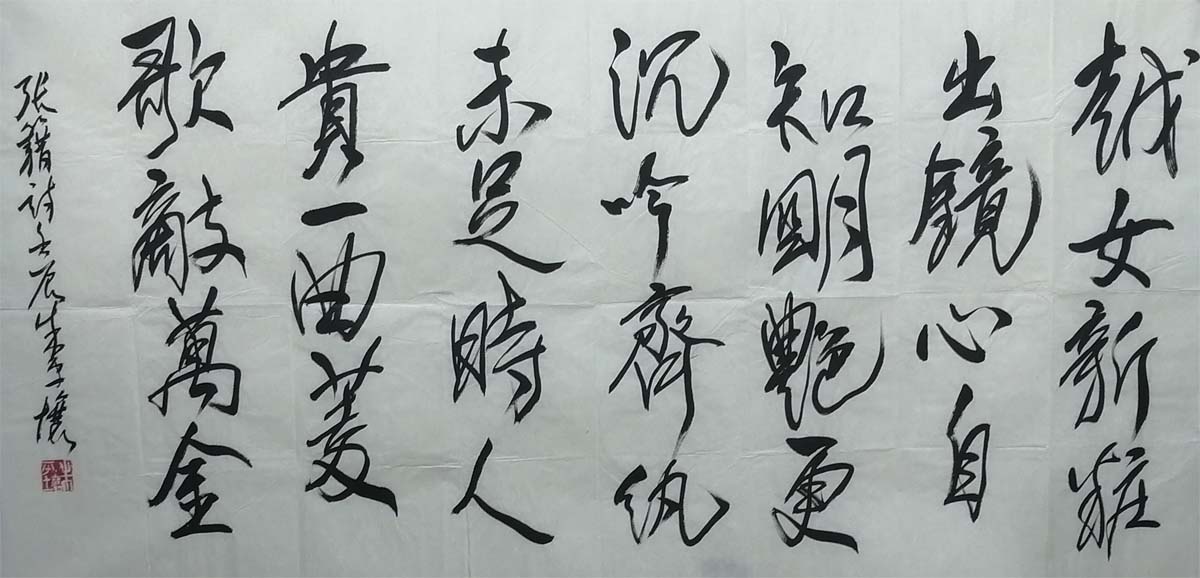 越女新粧
出鏡心自
知明艷更
沉吟齊紈
未足時人
貴一曲菱
歌敵萬金
張籍詩壬辰